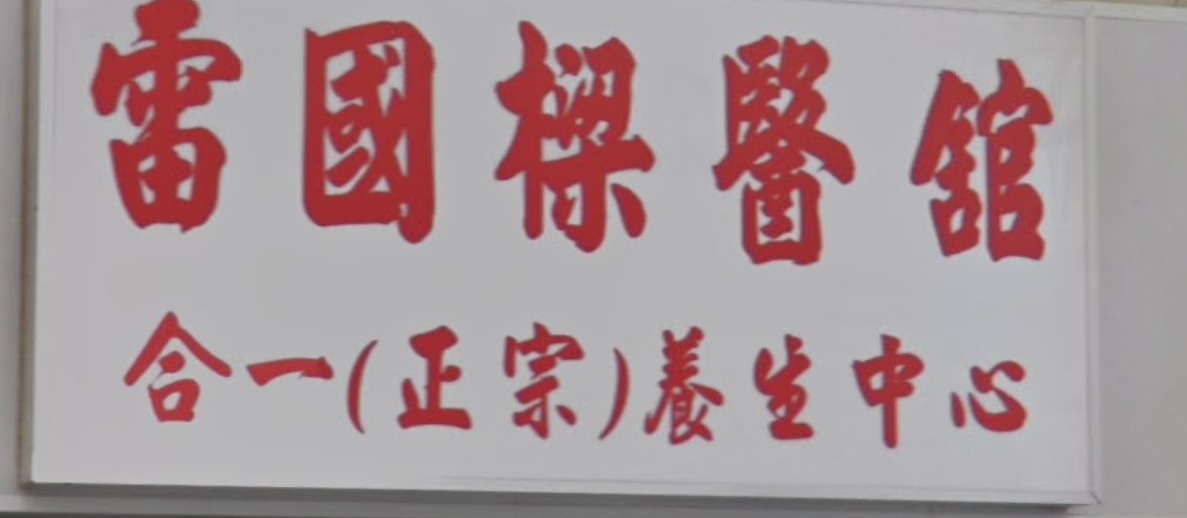 雷國樑醫舘
合一(正宗)養生中心